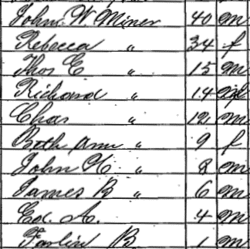 John W Miner 40 m
Rebecca " 34 f
Thos E " 15 m
Richard " 14 m
Chas " 12 m
Beth Ann " 9 f
John H " 8 m
James B " 6 m
Ed. A. 4 m
B 1 m